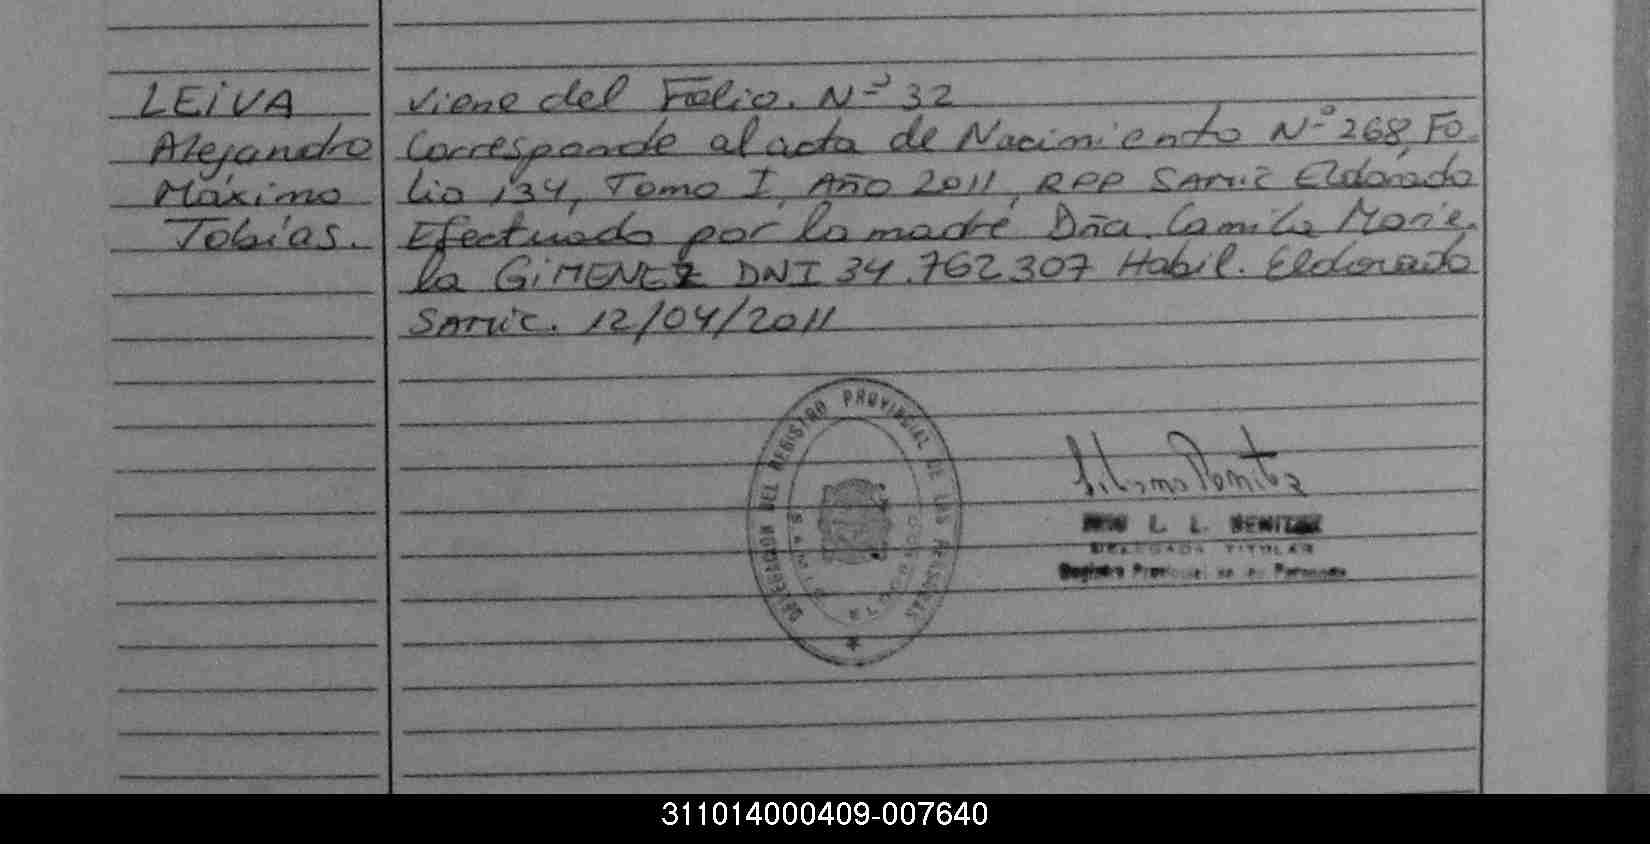 LEIVA
Alejandro
Máximo
Tobías.
Viene del Folio. Nº 32
Corresponde al acta de Nacimiento Nº 268, Fo-
lio 134, Tomo I, Año 2011, RPP SAMIC Eldorado
Efectuado por la madre Dña. Camila Marie-
la GIMENEZ DNI 34.762307 Habil. Eldorado
SAMIC. 12/04/2011
DELEGACION DEL REGISTRO PROVINCIAL DE LAS PERSONAS
L. L. BENITEZ
DELEGADA TITULAR
Registro Provincial de las Personas
311014000409-007640